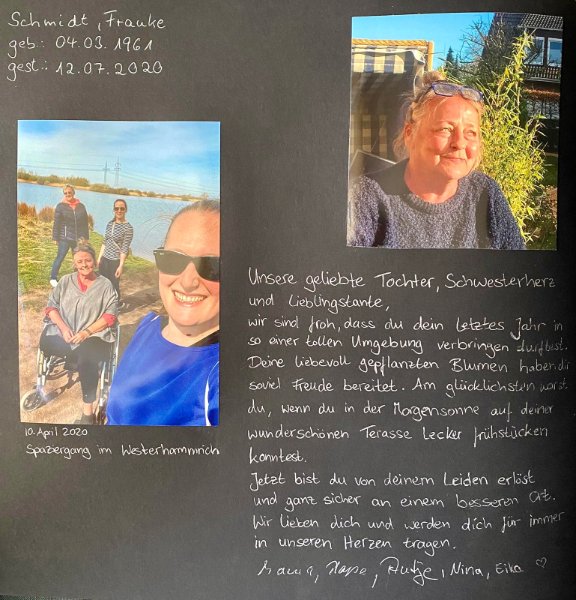 Schmidt, Frauke
geb.: 04.03.1961
gest.: 12.07.2020
10. April 2020
Spaziergang im Westerhammrich
Unsere geliebte Tochter, Schwesterherz
und Lieblingstante,
wir sind froh, dass du dein letztes Jahr in
so einer tollen Umgebung verbringen durftest.
Deine liebevoll gepflanzten Blumen haben dir
soviel Freude bereitet. Am glücklichsten warst
du, wenn du in der Morgensonne auf deiner
wunderschönen Terasse lecker frühstücken
konntest.
Jetzt bist du von deinem Leiden erlöst
und ganz sicher an einem besseren Ort.
Wir lieben dich und werden dich für immer
in unseren Herzen tragen.
Mama, Antje, Nina, Eika ♡